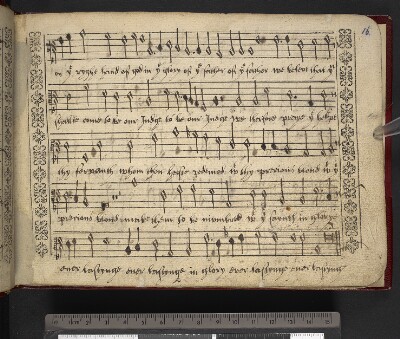 16
on yͤ ryght hand of god in yͤ glory of yͤ father of yͤ father we beleve that yͧ
shalt come to be our Judge to be our Judge we therfore praye yͤ helpe
thy servants whom thou haste redemed wͭ thy precious bloud wͭ yͥ
precious bloud make them to be numbred wͭ yͥ saints in glorye
ever lastynge ever lastynge in glory ever lastynge ever lastyng